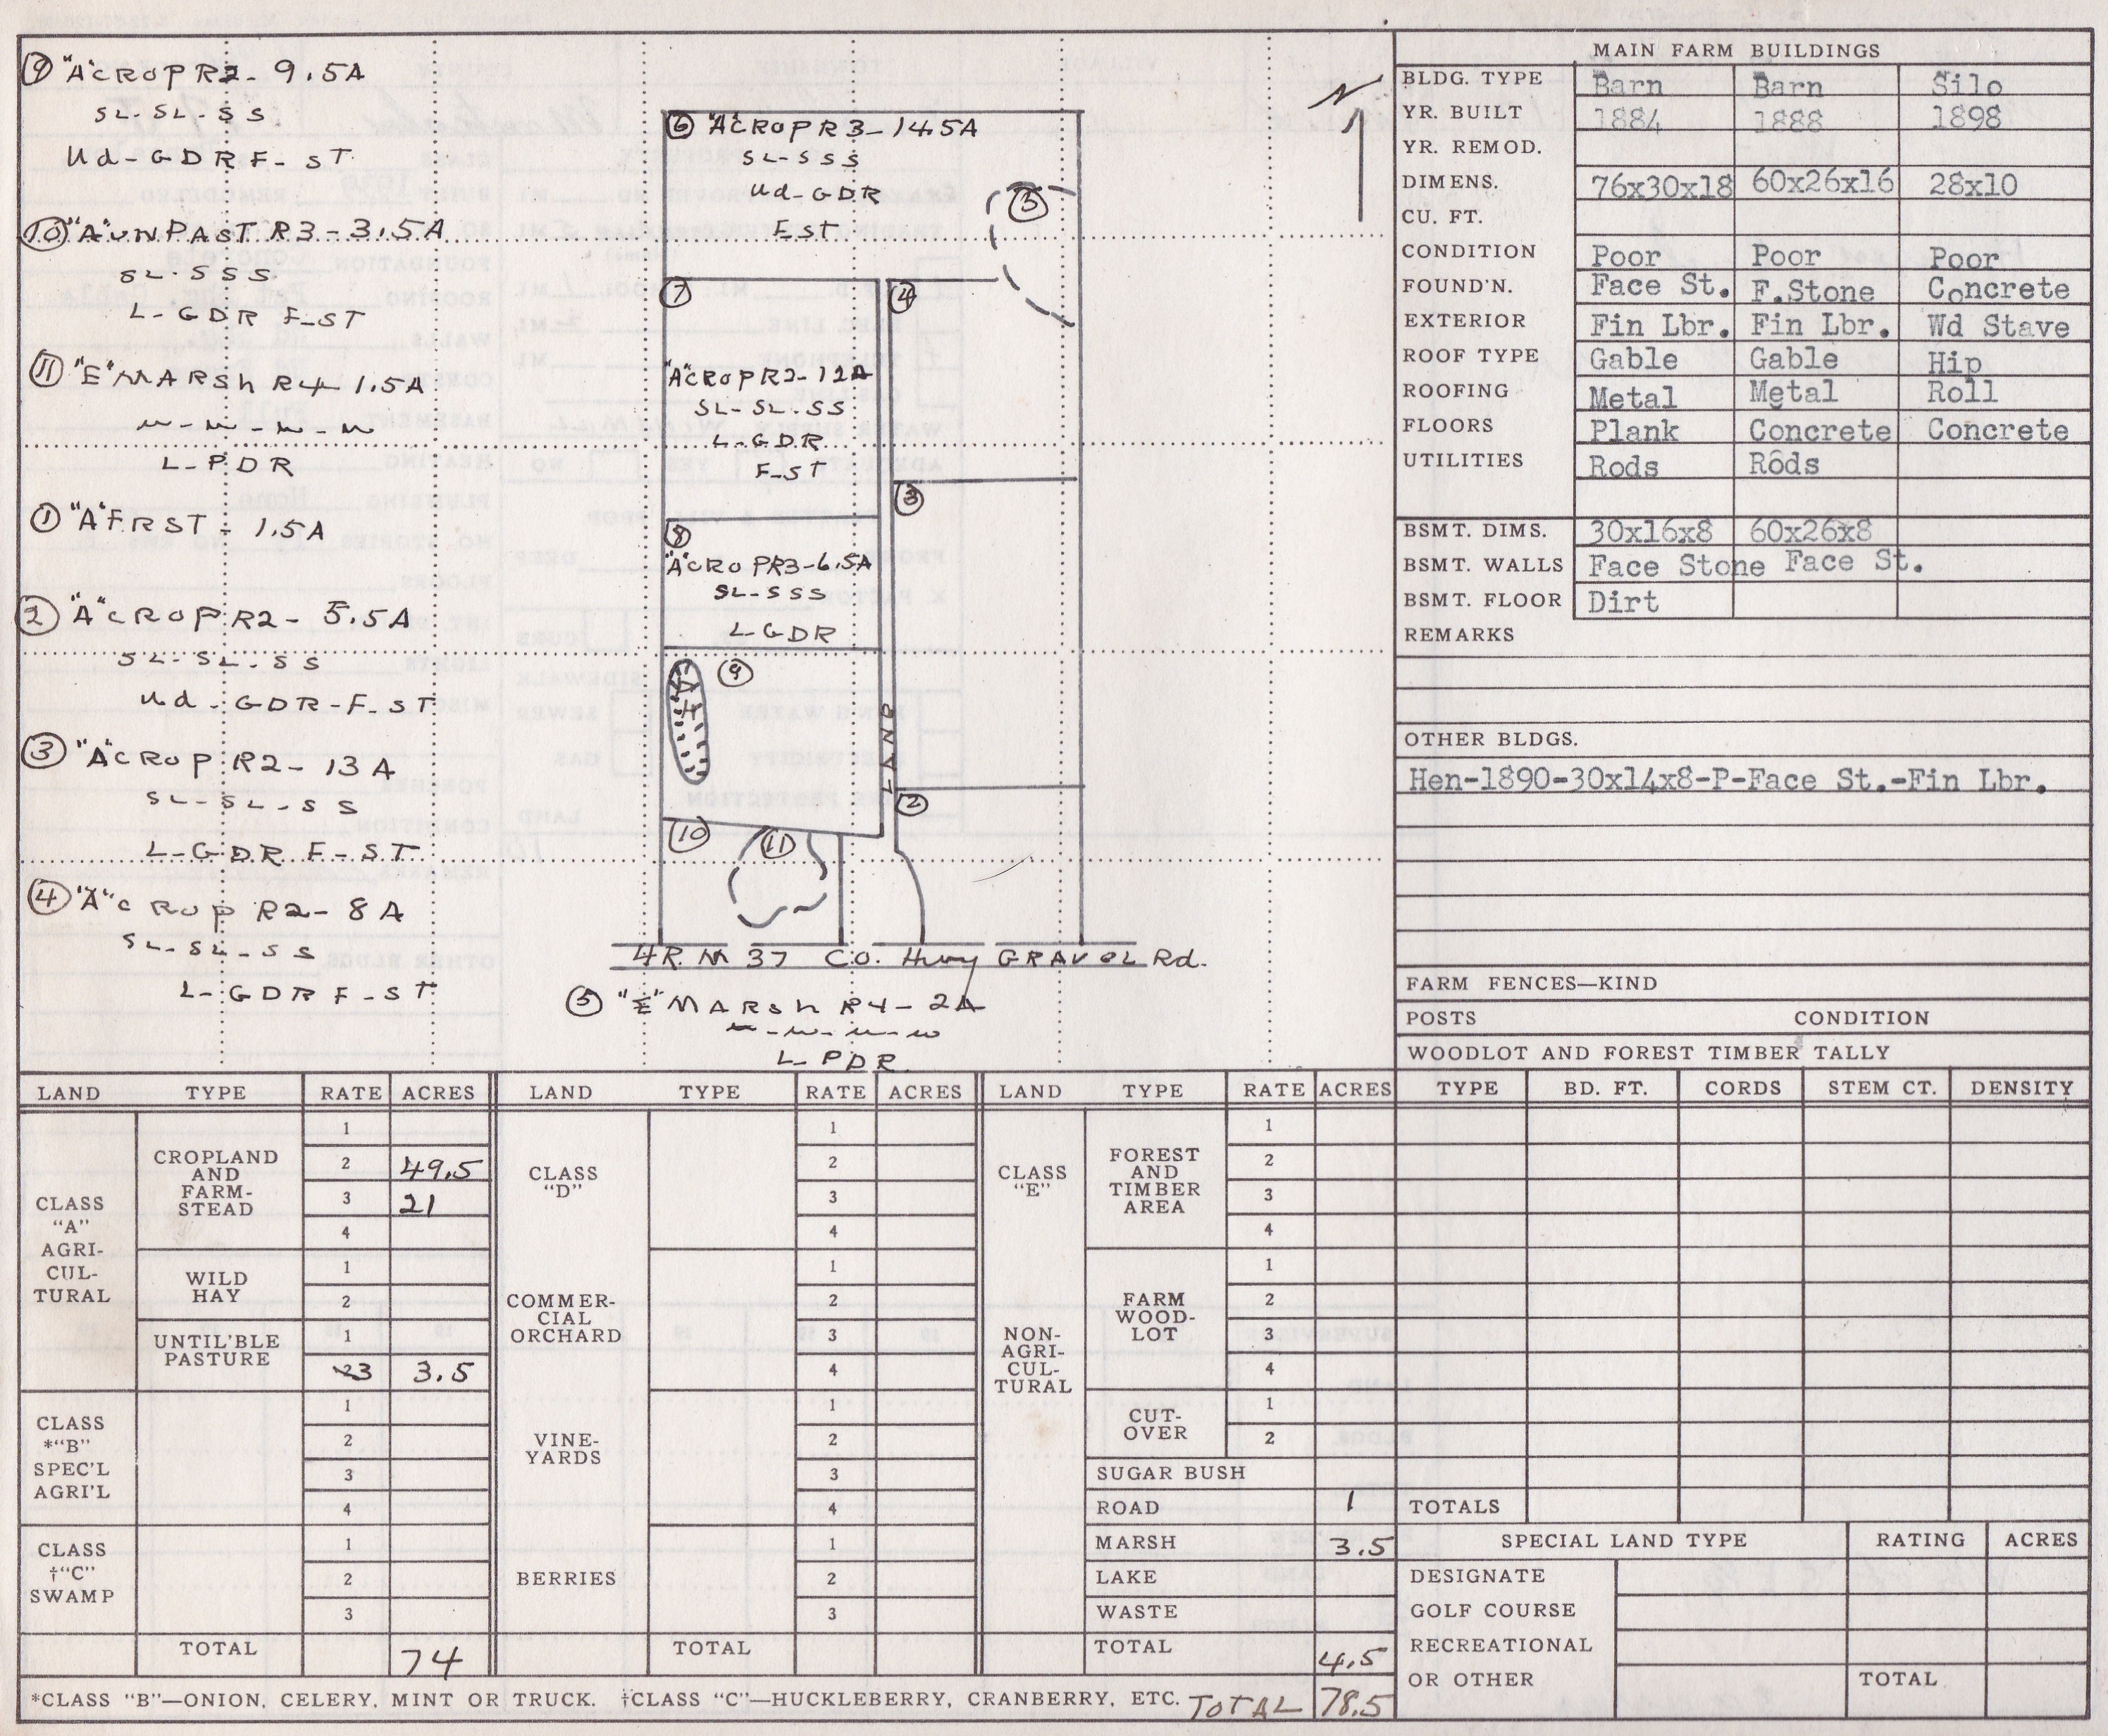 ⑨ "A" CROP R2 - 9.5A
SL-SL-SS
Ud-GDRF-ST
⑩ "A" UNPAST R3 - 3.5A
SL-SSS
L-GDR F-ST
⑪ "E" MARSH R4 - 1.5A
L-PDR
① "A" FRST - 1.5A
② "A" CROP R2 - 5.5A
SL-SL-SS
Ud-GDR-F-ST
③ "A" CROP R2 - 13A
SL-SL-SS
L-GDR F-ST
④ "A" CROP R2 - 8A
SL-SL-SS
L-GDR F-ST
N
⑥ "A" CROP R3 - 14.5A
SL-SSS
Ud-GDR
FST
⑤
⑦
④
"A" CROP R2 - 12A
SL-SL-SS
L-GDR
F-ST
③
⑧
"A" CROP R3 - 6.5A
SL-SSS
L-GDR
⑨
LANE
②
⑩
⑪
4R. M 37 CO. Hwy GRAVEL Rd.
⑤ "E" MARSH R4 - 2A
L-PDR
MAIN FARM BUILDINGS
BLDG. TYPE Barn Barn Silo
YR. BUILT 1884 1888 1898
YR. REMOD.
DIMENS. 76x30x18 60x26x16 28x10
CU. FT.
CONDITION Poor Poor Poor
FOUND'N. Face St. F.Stone Concrete
EXTERIOR Fin Lbr. Fin Lbr. Wd Stave
ROOF TYPE Gable Gable Hip
ROOFING Metal Metal Roll
FLOORS Plank Concrete Concrete
UTILITIES Rods Rods
BSMT. DIMS. 30x16x8 60x26x8
BSMT. WALLS Face Stone Face St.
BSMT. FLOOR Dirt
REMARKS
OTHER BLDGS.
Hen-1890-30x14x8-P-Face St.-Fin Lbr.
FARM FENCES—KIND
POSTS CONDITION
WOODLOT AND FOREST TIMBER TALLY
TYPE BD. FT. CORDS STEM CT. DENSITY
TOTALS
SPECIAL LAND TYPE RATING ACRES
DESIGNATE
GOLF COURSE
RECREATIONAL
OR OTHER TOTAL
LAND TYPE RATE ACRES
CLASS
"A"
AGRI-
CUL-
TURAL
CROPLAND
AND
FARM-
STEAD
1
2 49.5
3 21
4
WILD
HAY
1
2
UNTIL'BLE
PASTURE
1
3 3.5
CLASS
*"B"
SPEC'L
AGRI'L
1
2
3
4
CLASS
†"C"
SWAMP
1
2
3
TOTAL 74
LAND TYPE RATE ACRES
CLASS
"D"
COMMER-
CIAL
ORCHARD
VINE-
YARDS
BERRIES
1
2
3
4
1
2
3
4
1
2
3
4
1
2
3
TOTAL
LAND TYPE RATE ACRES
CLASS
"E"
NON-
AGRI-
CUL-
TURAL
FOREST
AND
TIMBER
AREA
1
2
3
4
FARM
WOOD-
LOT
1
2
3
4
CUT-
OVER
1
2
SUGAR BUSH
ROAD 1
MARSH 3.5
LAKE
WASTE
TOTAL 4.5
*CLASS "B"—ONION, CELERY, MINT OR TRUCK. †CLASS "C"—HUCKLEBERRY, CRANBERRY, ETC. TOTAL 78.5